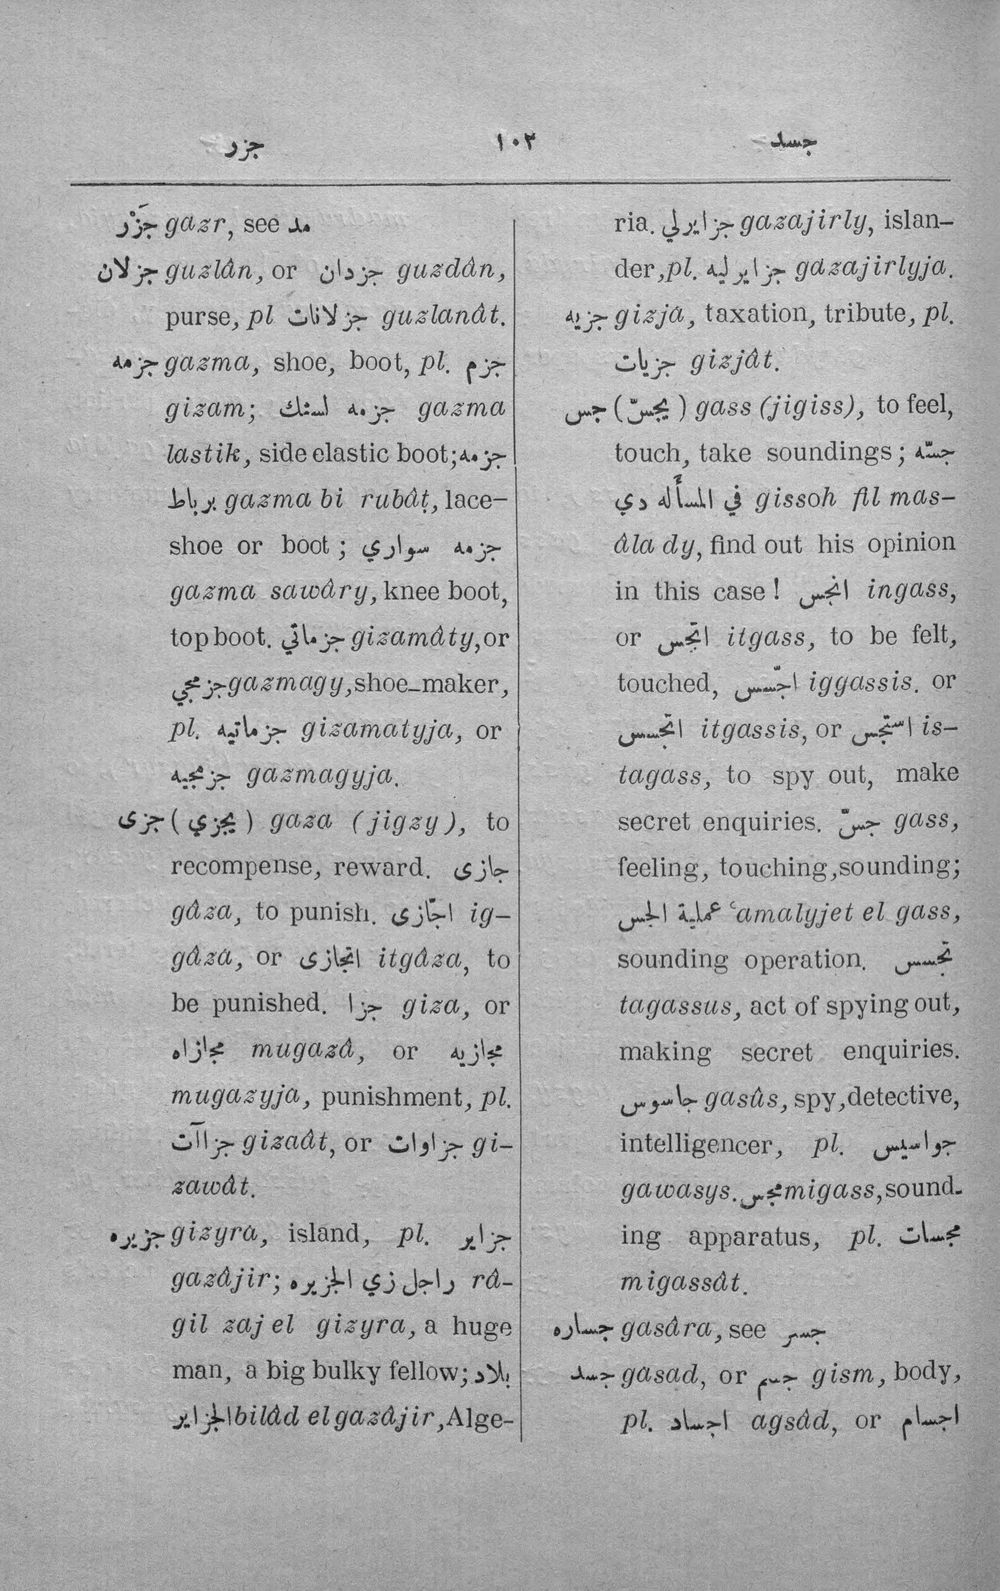 جزر ١٠٢ جسد
جَزْر gazr, see مد
جزلان guzlân, or جزدان guzdân,
purse, pl جزلانات guzlanât.
جزمه gazma, shoe, boot, pl. جزم
gizam; جزمه لستك gazma
lastik, side elastic boot; جزمه
برباط gazma bi rubâṭ, lace-
shoe or boot; جزمه سواري
gazma sawâry, knee boot,
top boot. جزماتي gizamâty, or
جزمجي gazmagy, shoe-maker,
pl. جزماتيه gizamatyja, or
جزمجيه gazmagyja.
جزى (يجزي) gaza (jigzy), to
recompense, reward. جازى
gâza, to punish. اجّازى ig-
gâza, or اتجازى itgâza, to
be punished. جزا giza, or
مجازاه mugazâ, or مجازيه
mugazyja, punishment, pl.
جزاآت gizaât, or جزاوات gi-
zawât.
جزيره gizyra, island, pl. جزاير
gazâjir; راجل زي الجزيره râ-
gil zaj el gizyra, a huge
man, a big bulky fellow; بلاد
الجزاير bilâd el gazâjir, Alge-
ria. جزايرلي gazajirly, islan-
der, pl. جزايرليه gazajirlyja.
جزيه gizja, taxation, tribute, pl.
جزيات gizjât.
جس (يجسّ) gass (jigiss), to feel,
touch, take soundings; جسّه
في المسأله دي gissoh fil mas-
âla dy, find out his opinion
in this case! انجس ingass,
or اتجس itgass, to be felt,
touched, اجّسس iggassis. or
اتجسس itgassis, or استجس is-
tagass, to spy out, make
secret enquiries. جسّ gass,
feeling, touching, sounding;
عملية الجس ‘amalyjet el gass,
sounding operation. تجسس
tagassus, act of spying out,
making secret enquiries.
جاسوس gasûs, spy, detective,
intelligencer, pl. جواسيس
gawasys. مجس migass, sound-
ing apparatus, pl. مجسات
migassât.
جساره gasâra, see جسر
جسد gasad, or جسم gism, body,
pl. اجساد agsâd, or اجسام